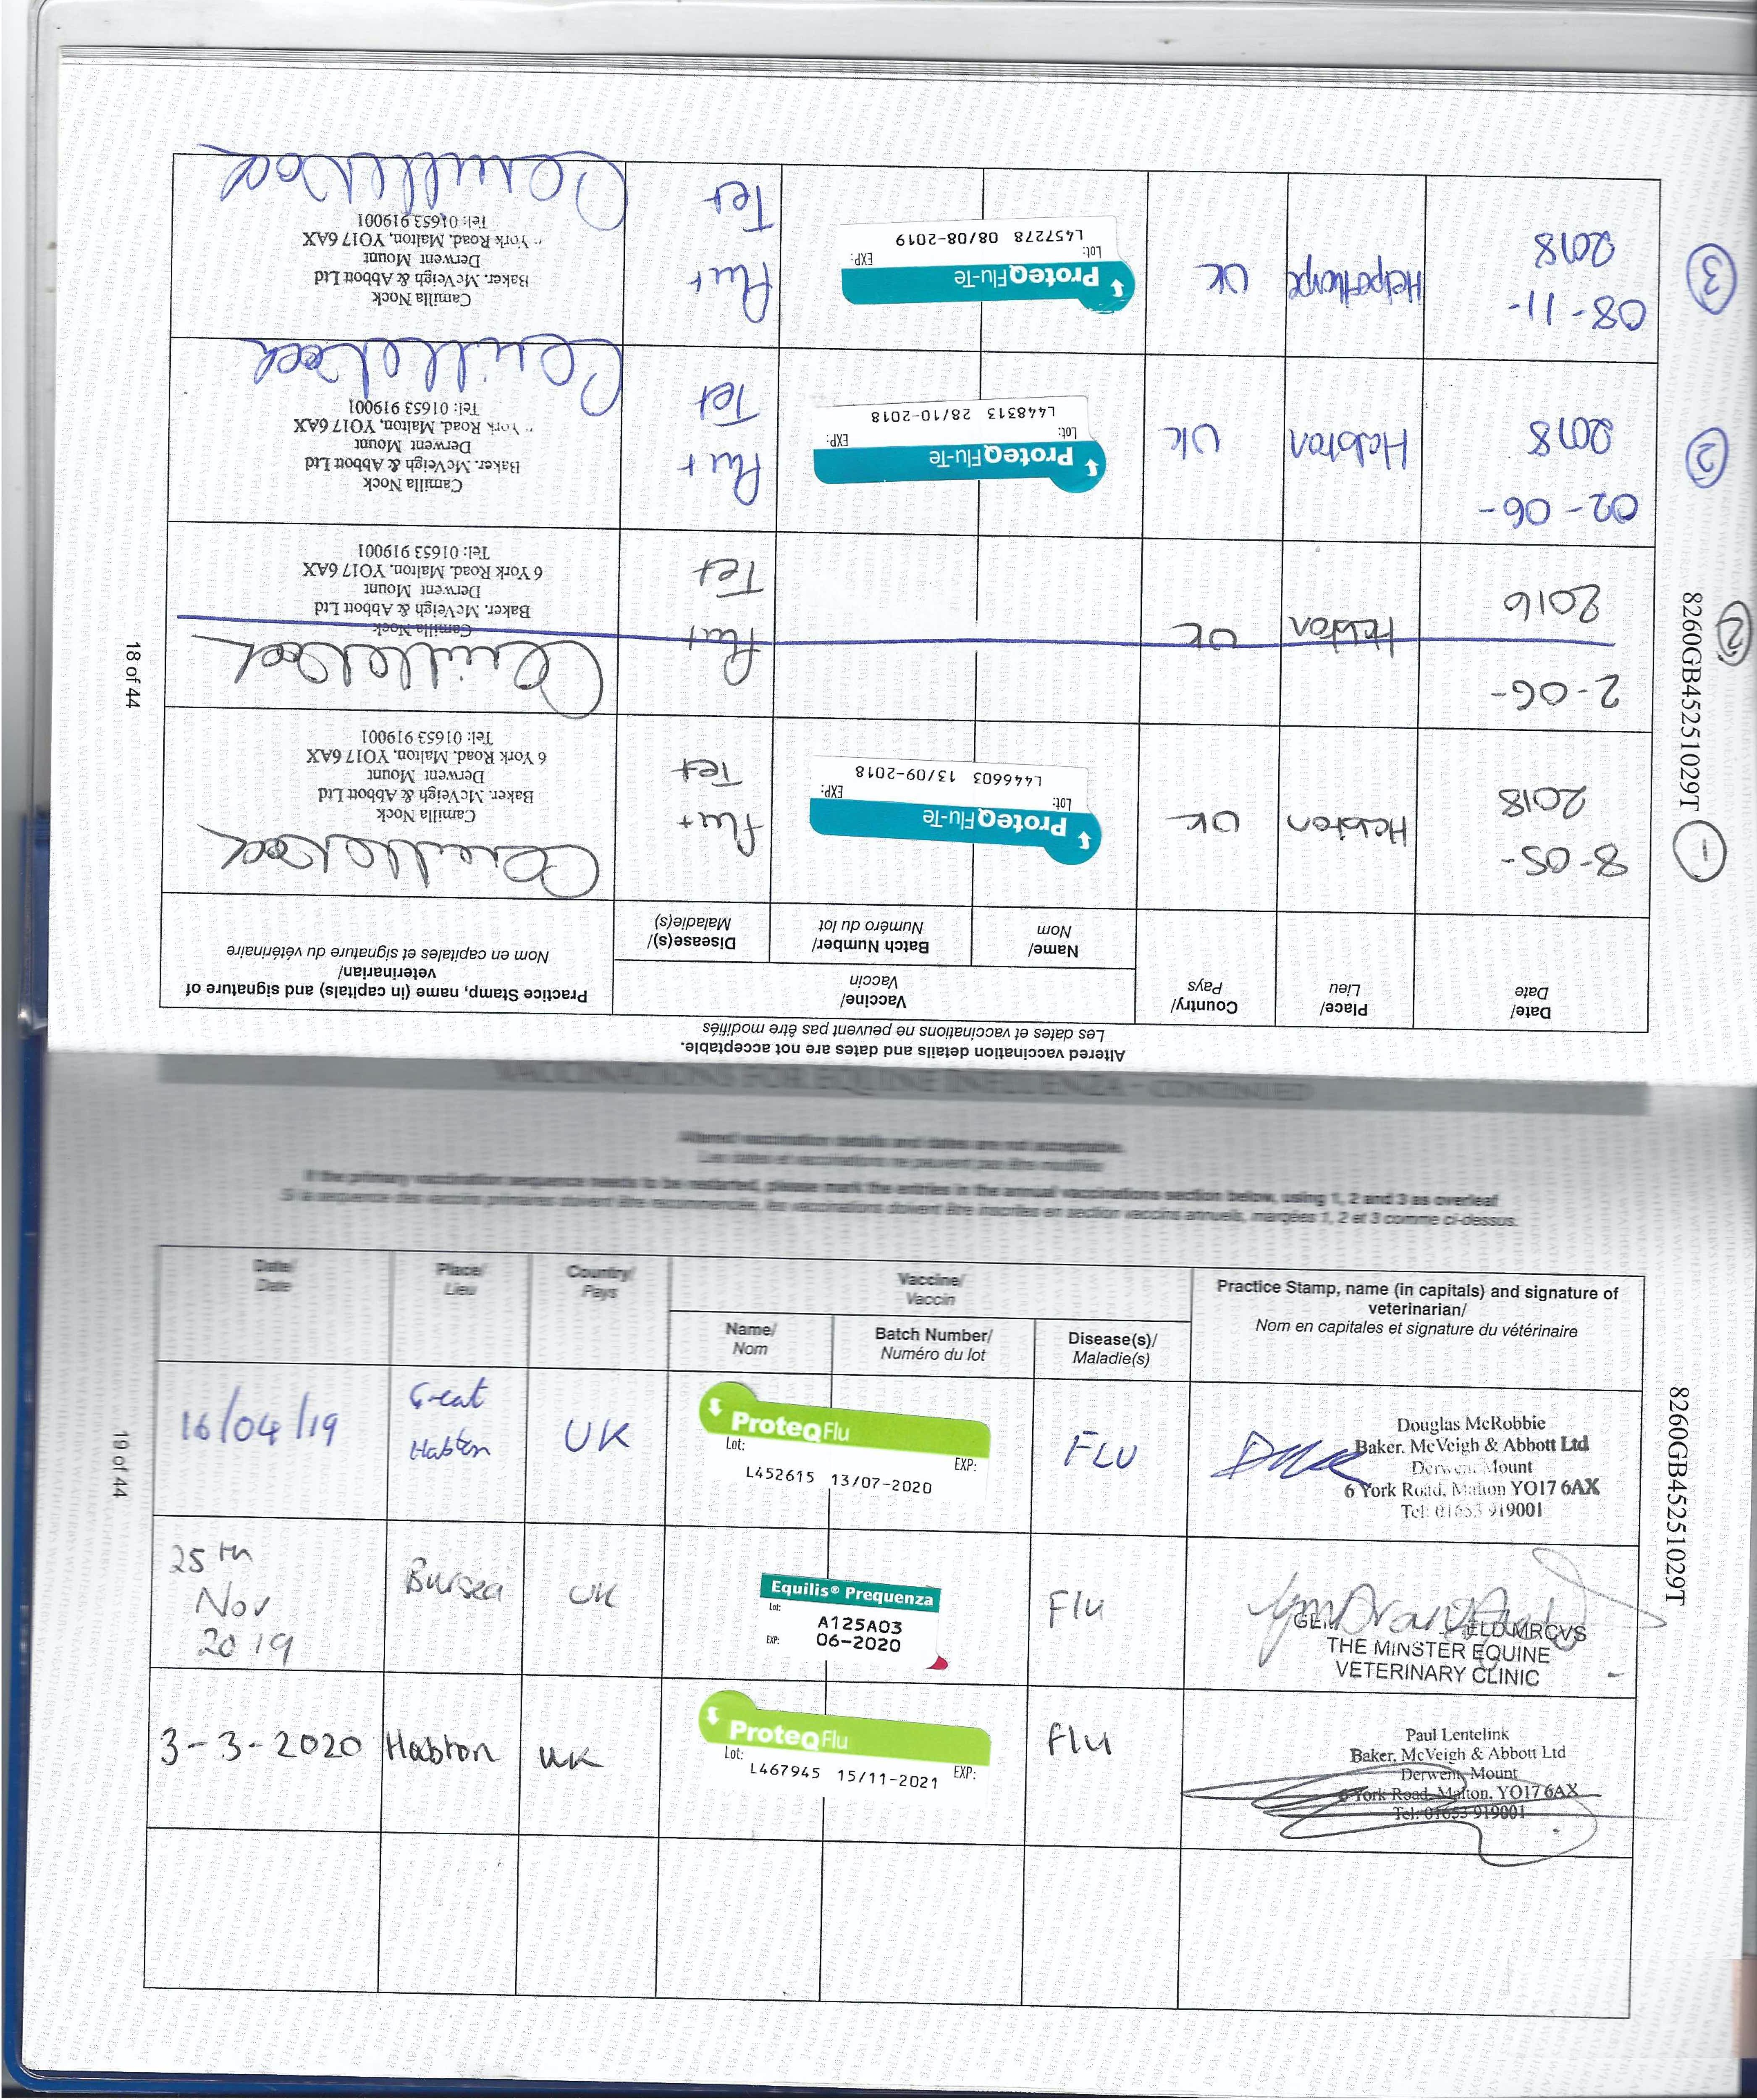 Altered vaccination details and dates are not acceptable.
Les dates et vaccinations ne peuvent pas être modifiés
Date/
Date
Place/
Lieu
Country/
Pays
Vaccine/
Vaccin
Name/
Nom
Batch Number/
Numéro du lot
Disease(s)/
Maladie(s)
Practice Stamp, name (in capitals) and signature of
veterinarian/
Nom en capitales et signature du vétérinaire
1
8-05-
2018
Habton
UK
ProteqFlu-Te
Lot:
EXP:
L446603 13/09-2018
Flu+
Tet
Camilla Nock
Baker. McVeigh & Abbott Ltd
Derwent Mount
6 York Road. Malton, YO17 6AX
Tel: 01653 919001
2
2-06-
2016
Habton
UK
Flu+
Tet
Camilla Nock
Baker. McVeigh & Abbott Ltd
Derwent Mount
6 York Road. Malton. YO17 6AX
Tel: 01653 919001
2
02-06-
2018
Habton
UK
ProteqFlu-Te
Lot:
EXP:
L448313 28/10-2018
Flu+
Tet
Camilla Nock
Baker. McVeigh & Abbott Ltd
Derwent Mount
York Road. Malton, YO17 6AX
Tel: 01653 919001
3
08-11-
2018
Helperthorpe
UK
ProteqFlu-Te
Lot:
EXP:
L457278 08/08-2019
Flu+
Tet
Camilla Nock
Baker. McVeigh & Abbott Ltd
Derwent Mount
York Road. Malton, YO17 6AX
Tel: 01653 919001
8260GB45251029T
18 of 44
VACCINATIONS FOR EQUINE INFLUENZA - CONTINUED
Altered vaccination details and dates are not acceptable.
Les dates et vaccinations ne peuvent pas être modifiés
If the primary vaccination sequence needs to be restarted, please mark the entries in the annual vaccinations section below, using 1, 2 and 3 as overleaf
Si la sequence des vaccins primaires doivent être recommencée, les vaccinations doivent être inscrites en section vaccins annuels, marqées 1, 2 et 3 comme ci-dessus.
Date/
Date
Place/
Lieu
Country/
Pays
Vaccine/
Vaccin
Name/
Nom
Batch Number/
Numéro du lot
Disease(s)/
Maladie(s)
Practice Stamp, name (in capitals) and signature of
veterinarian/
Nom en capitales et signature du vétérinaire
16/04/19
Great
Habton
UK
ProteqFlu
Lot:
EXP:
L452615 13/07-2020
FLU
Douglas McRobbie
Baker. McVeigh & Abbott Ltd
Derwent Mount
6 York Road, Malton YO17 6AX
Tel: 01653 919001
25th
Nov
2019
Bursea
UK
Equilis® Prequenza
Lot:
A125A03
EXP:
06-2020
Flu
MRCVS
THE MINSTER EQUINE
VETERINARY CLINIC
3-3-2020
Habton
UK
ProteqFlu
Lot:
EXP:
L467945 15/11-2021
Flu
Paul Lentelink
Baker. McVeigh & Abbott Ltd
Derwent Mount
6 York Road, Malton, YO17 6AX
Tel: 01653 919001
8260GB45251029T
19 of 44